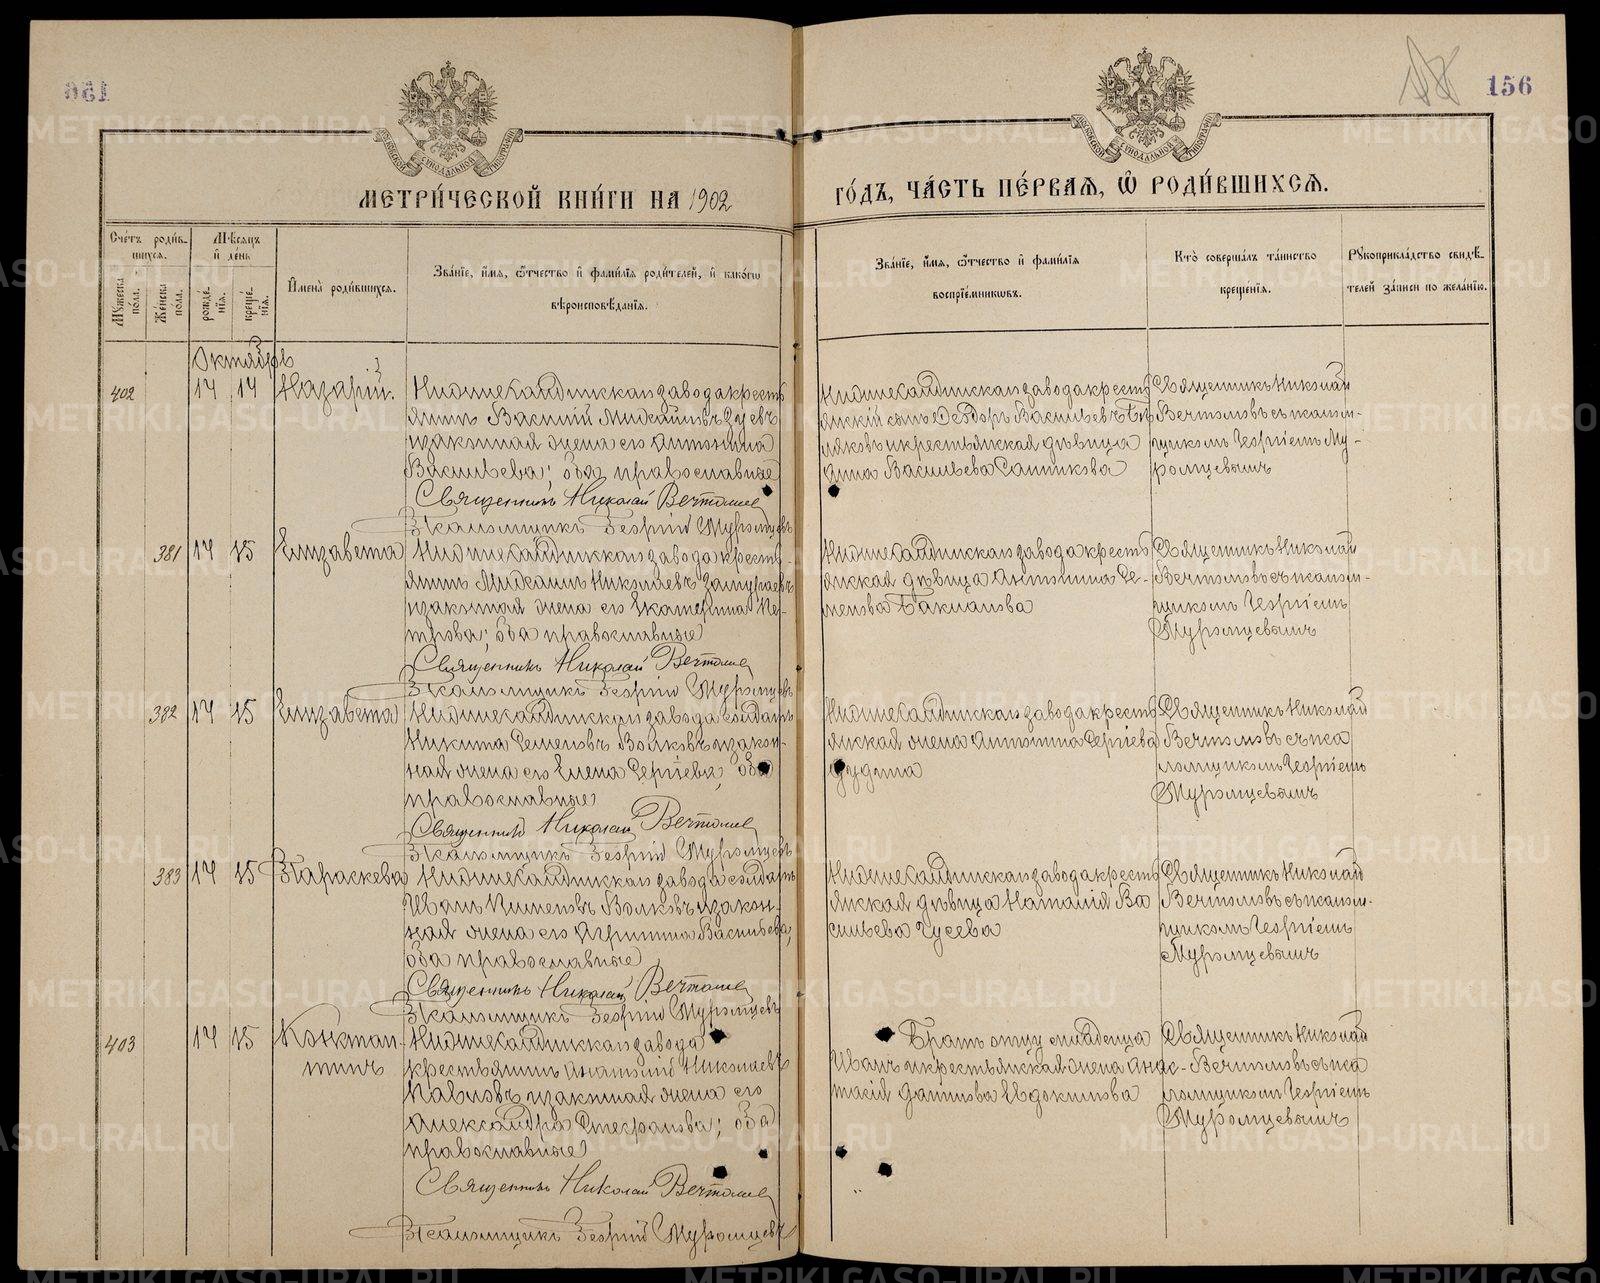 156
МЕТРИ́ЧЕСКОЙ КНИ́ГИ НА 1902
ГО́ДЪ, ЧА́СТЬ ПЕ́РВАѦ, Ѡ҆ РОДИ́ВШИХСѦ.
Сче́тъ роди́в-
шихсѧ.
Мꙋ́жеска по́ла.
Же́нска по́ла.
Мѣ́сѧцъ
и҆ де́нь
рожде́-
нїѧ.
креще́-
нїѧ.
И҆мена̀ роди́вшихсѧ.
Зва́нїе, и҆́мѧ, ѻ҆́тчество и҆ фами́лїѧ роди́телей, и҆ како́гѡ
вѣроисповѣ́данїѧ.
Зва́нїе, и҆́мѧ, ѻ҆́тчество и҆ фами́лїѧ
воспрїе́мникѡвъ.
Кто̀ соверша́лъ та́инство
креще́нїѧ.
Рꙋкоприкла́дство свидѣ́-
телей за́писи по жела́нїю.
Октябрь
402 14 14 Назарій.
Нижнесалдинскаго завода кресть
янинъ Василій Михайловъ Зуевъ
и законная жена его Антонина
Васильева; оба православные
Священникъ Николай
Псаломщикъ Георгій Муромцевъ
Нижнесалдинскаго завода кресть
янскій сынъ Ѳеодоръ Васильевъ
и крестьянская дѣвица
Анна Васильева Санникова
Священникъ Николай
съ псалом-
щикомъ Георгіемъ Му-
ромцевымъ
381 14 15 Елизавета
Нижнесалдинскаго завода кресть-
янинъ Михаилъ Николаевъ
и законная жена его Екатерина Пе-
трова; оба православные
Священникъ Николай
Псаломщикъ Георгій Муромцевъ
Нижнесалдинскаго завода кресть
янская дѣвица Антонина Се-
менова
Священникъ Николай
съ псалом-
щикомъ Георгіемъ
Муромцевымъ
382 14 15 Елизавета
Нижнесалдинскаго завода солдатъ
Никита Семеновъ Волковъ и закон-
ная жена его Елена Сергіева; оба
православные
Священникъ Николай
Псаломщикъ Георгій Муромцевъ
Нижнесалдинскаго завода кресть
янская жена Антонина Сергіева
Дудина
Священникъ Николай
съ пса
ломщикомъ Георгіемъ
Муромцевымъ
383 14 15 Параскева
Нижнесалдинскаго завода солдатъ
Иванъ Пименовъ Волковъ и закон-
ная жена его Агрипина Васильева;
оба православные
Священникъ Николай
Псаломщикъ Георгій Муромцевъ
Нижнесалдинскаго завода кресть
янская дѣвица Наталія Ва
сильева Гусева
Священникъ Николай
съ псалом-
щикомъ Георгіемъ
Муромцевымъ
403 14 15 Констан-
тинъ
Нижнесалдинскаго завода
крестьянинъ Анатолій Николаевъ
Павловъ и законная жена его
Александра Стефанова; оба
православные
Священникъ Николай
Псаломщикъ Георгій Муромцевъ
Братъ отцу младенца
Иванъ и крестьянская жена Анас-
тасія Данилова Евдокимова
Священникъ Николай
съ пса
ломщикомъ Георгіемъ
Муромцевымъ
METRIKI.GASO-URAL.RU